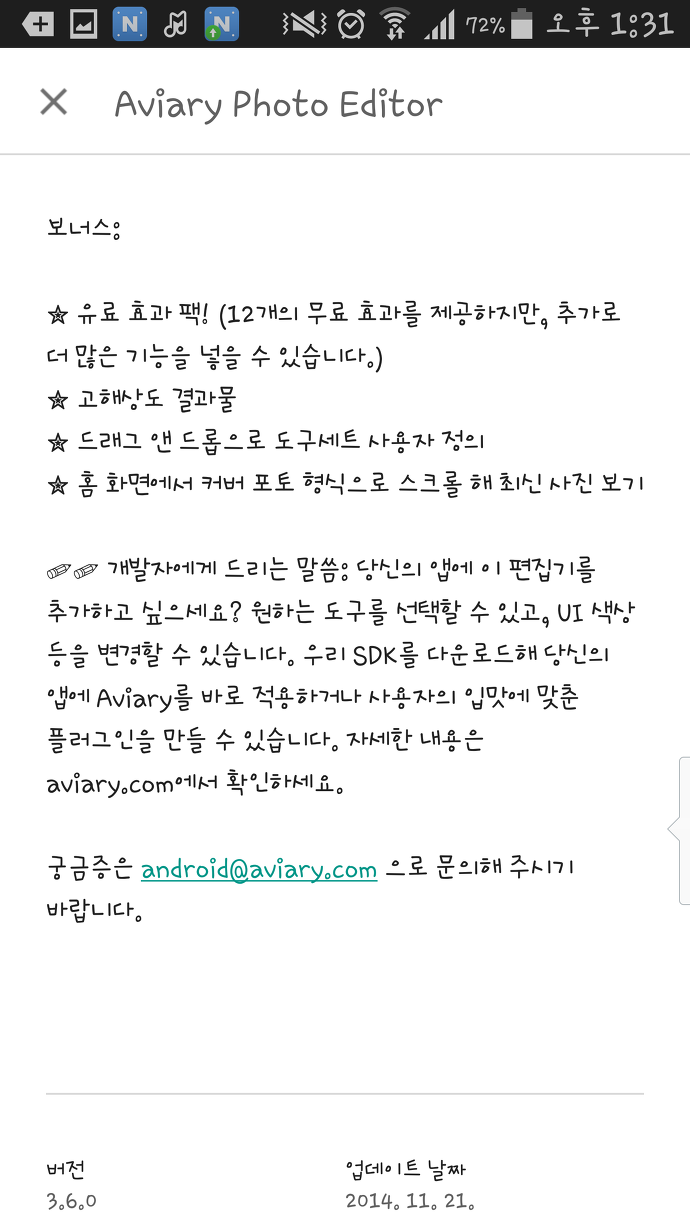 72% 오후 1:31
Aviary Photo Editor
보너스:
★ 유료 효과 팩! (12개의 무료 효과를 제공하지만, 추가로
더 많은 기능을 넣을 수 있습니다.)
★ 고해상도 결과물
★ 드래그 앤 드롭으로 도구세트 사용자 정의
★ 홈 화면에서 커버 포토 형식으로 스크롤 해 최신 사진 보기
✏✏ 개발자에게 드리는 말씀: 당신의 앱에 이 편집기를
추가하고 싶으세요? 원하는 도구를 선택할 수 있고, UI 색상
등을 변경할 수 있습니다. 우리 SDK를 다운로드해 당신의
앱에 Aviary를 바로 적용하거나 사용자의 입맛에 맞춘
플러그인을 만들 수 있습니다. 자세한 내용은
aviary.com에서 확인하세요.
궁금증은 android@aviary.com 으로 문의해 주시기
바랍니다.
버전 업데이트 날짜
3.6.0 2014. 11. 21.